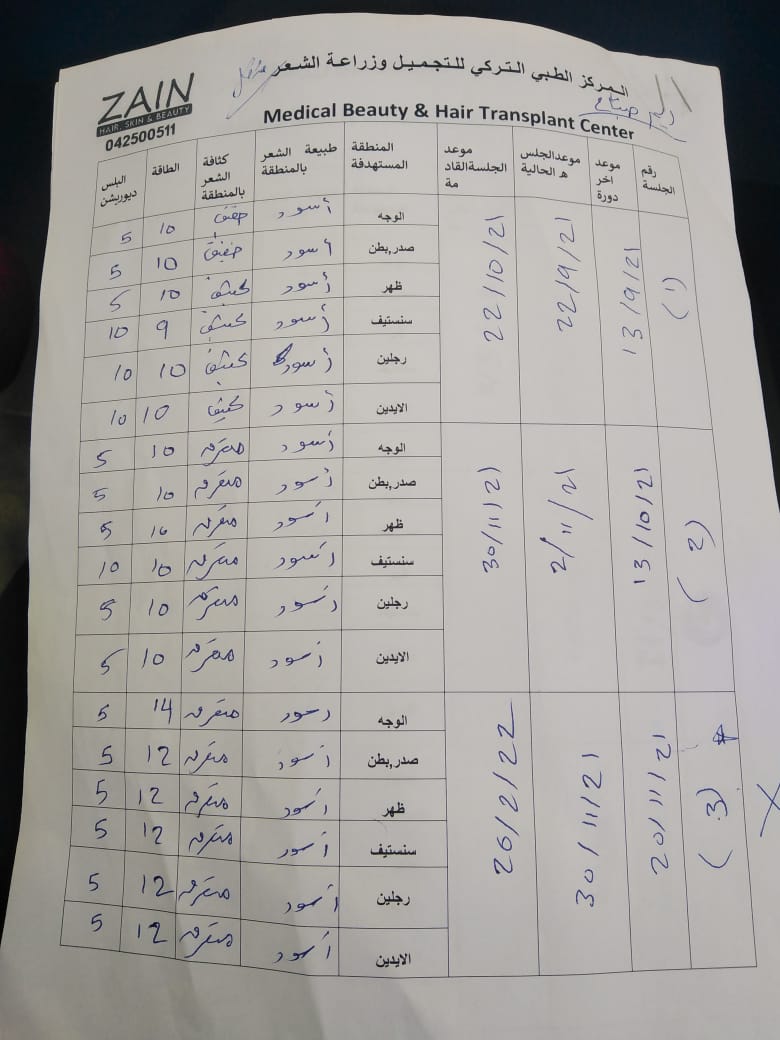 المركز الطبي التركي للتجميل وزراعة الشعر
ZAIN
HAIR, SKIN & BEAUTY
042500511
Medical Beauty & Hair Transplant Center
رقم الجلسة موعد اخر دورة موعدالجلسه الحالية موعد الجلسةالقادمة المنطقة المستهدفة طبيعة الشعر بالمنطقة كثافة الشعر بالمنطقة الطاقة البلس ديوريشن
(1) 13/9/21 22/9/21 22/10/21
الوجه أسود خفيف 10 5
صدر,بطن أسود خفيف 10 5
ظهر أسود كثيف 10 5
سنستيف أسود كثيف 9 10
رجلين أسود كثيف 10 10
الايدين أسود كثيف 10 10
(2) 13/10/21 2/11/21 30/11/21
الوجه أسود متفرق 10 5
صدر,بطن أسود متفرق 10 5
ظهر أسود متفرق 10 5
سنستيف أسود متفرق 10 10
رجلين أسود متفرق 10 5
الايدين أسود متفرق 10 5
(3) 20/11/21 30/11/21 26/2/22
الوجه اسود متفرق 14 5
صدر,بطن أسود متفرق 12 5
ظهر أسود متفرق 12 5
سنستيف أسود متفرق 12 5
رجلين أسود متفرق 12 5
الايدين أسود متفرق 12 5